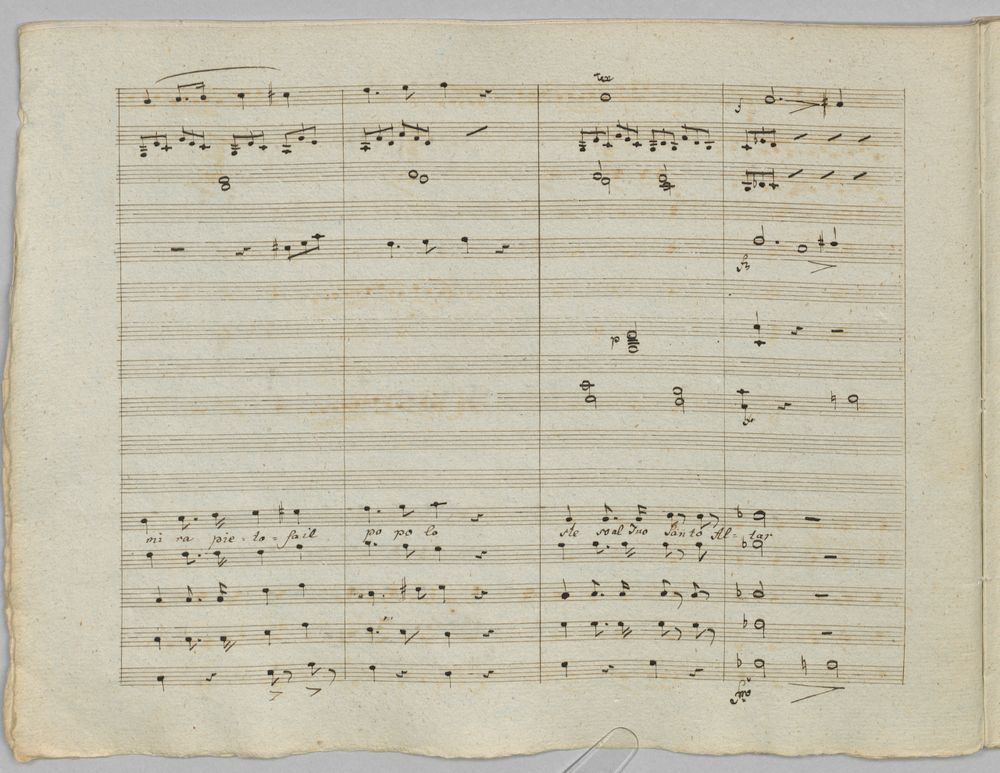 p
mi ra pie - to - sa il po po lo ste so al Tuo Santo Al - tar